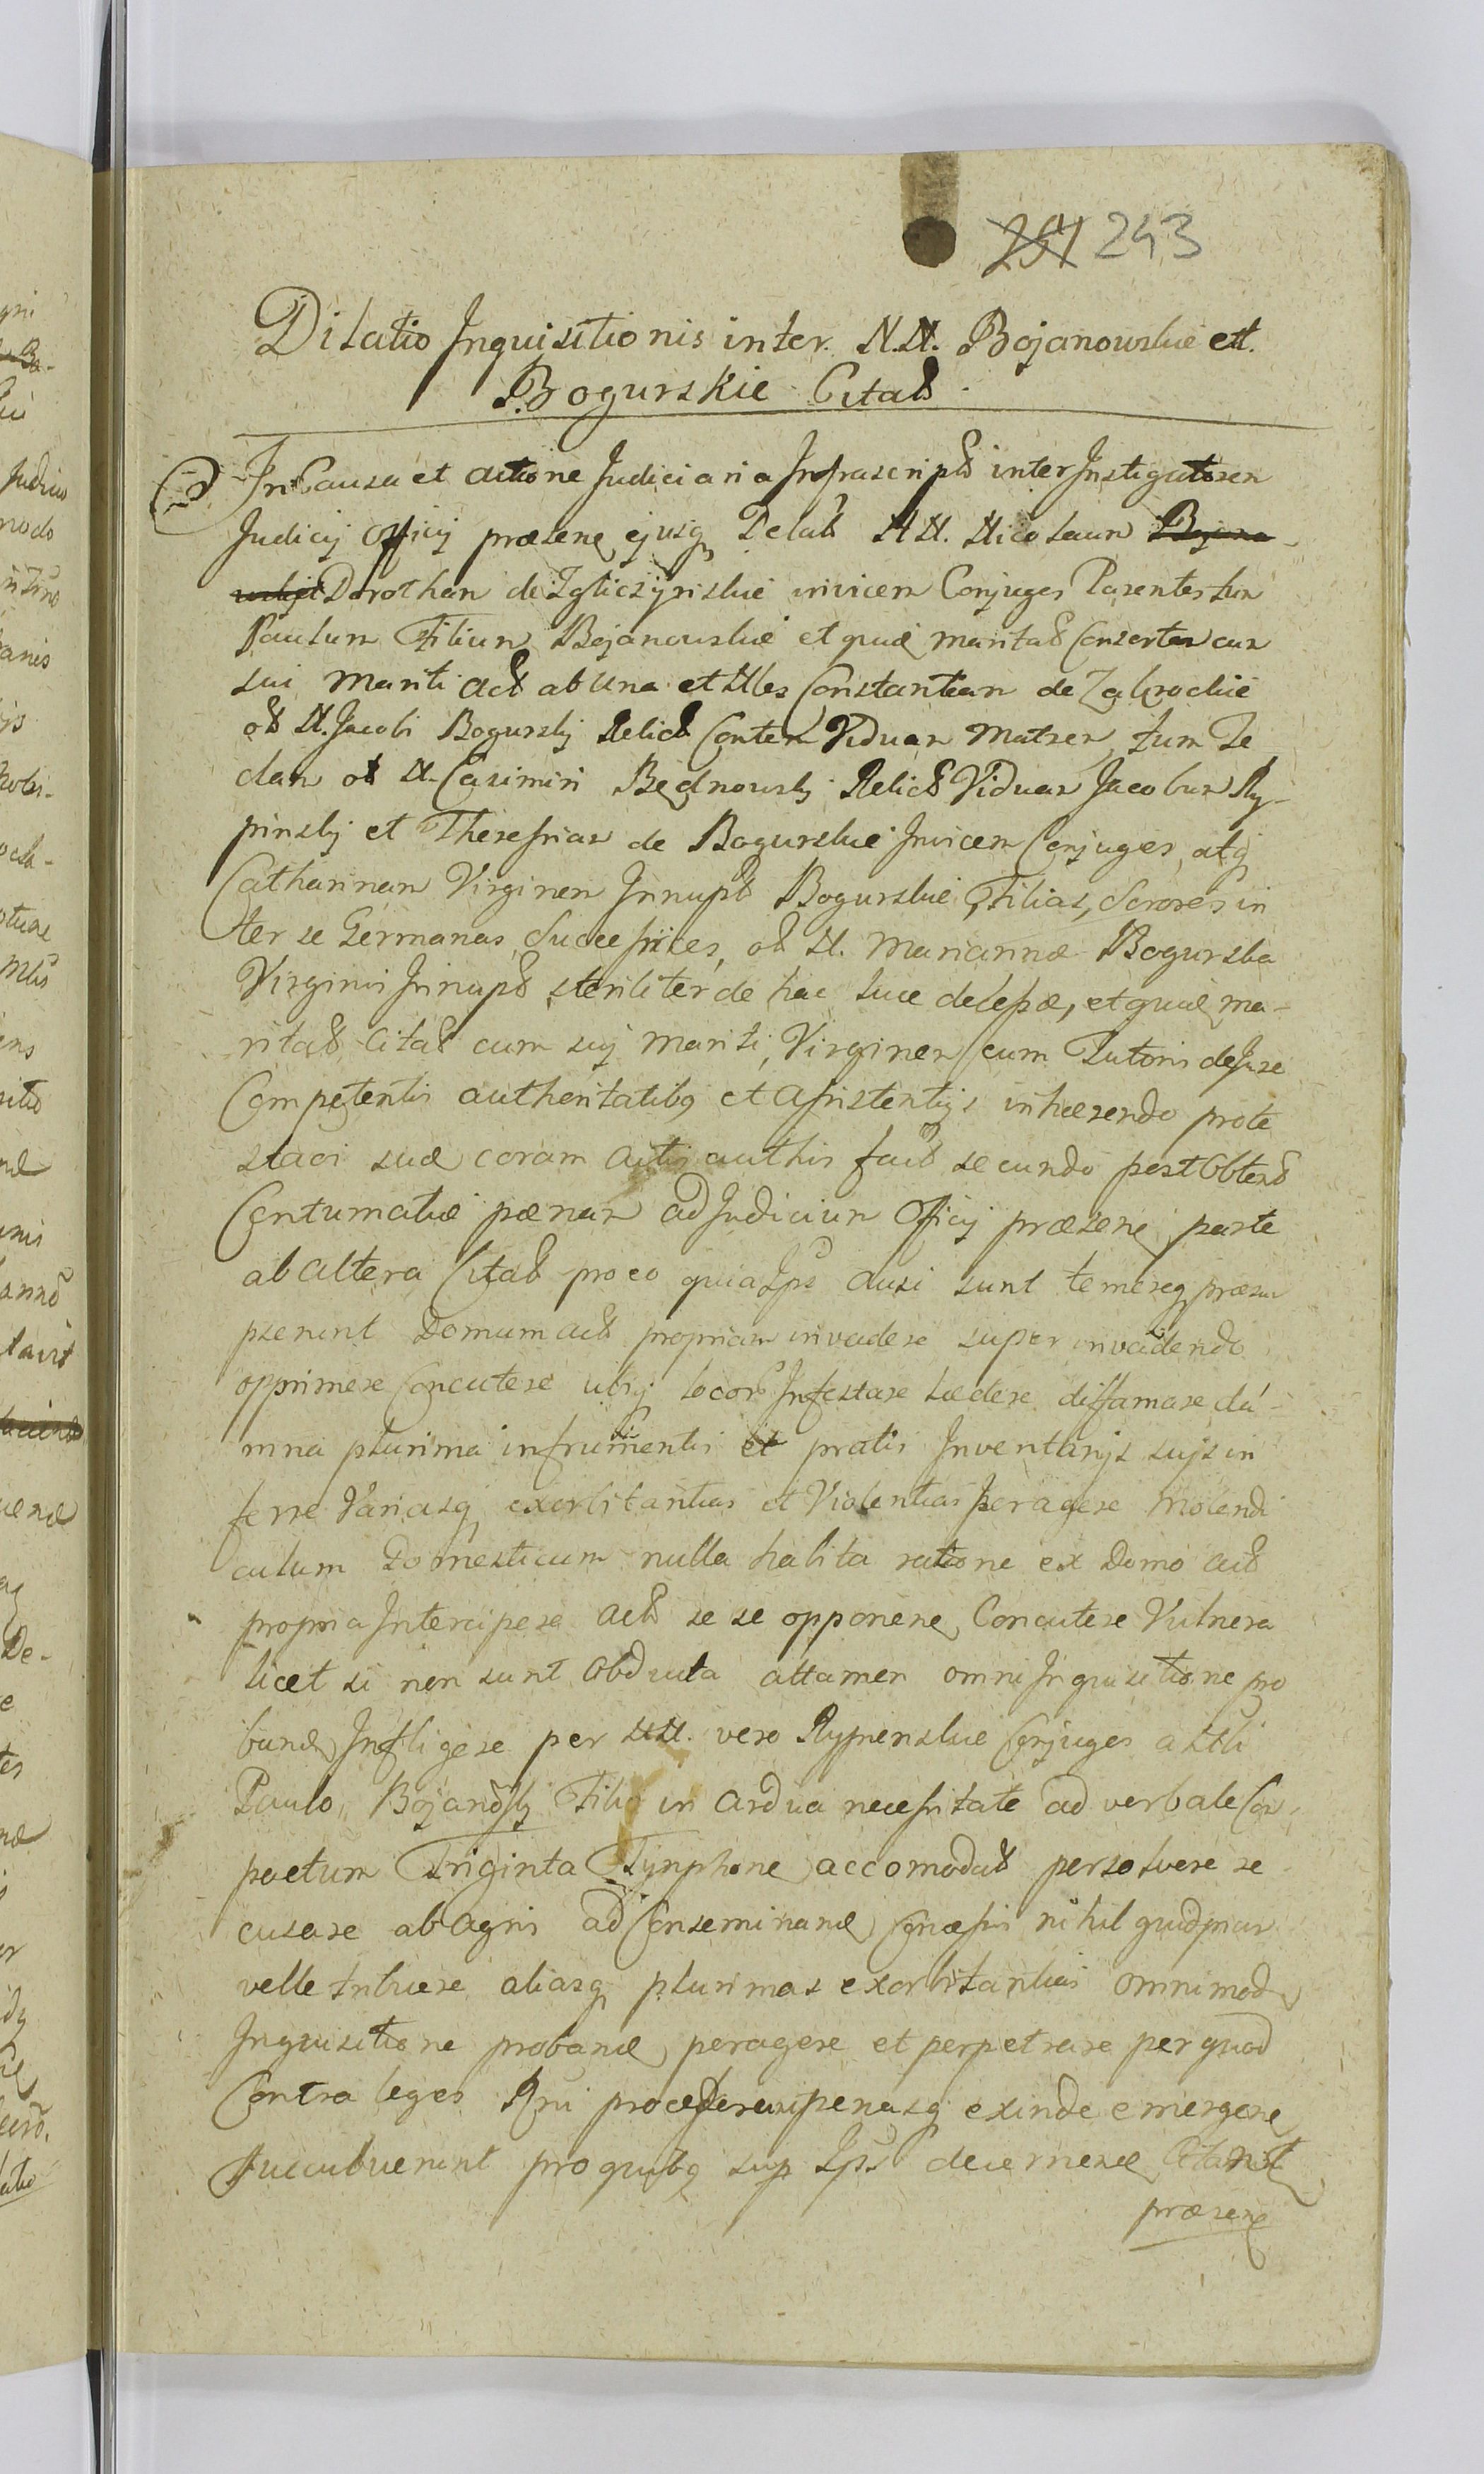 251 243
Dilatio Inquisitionis inter N.N. Bojanowskie et
Bogurskie Citatt
In Causa et actione Judiciaria Infrascriptt inter Instigatorem
Judicij Officij præsene ejusq Delatt NN. Nicolaum Bojano
wskij et Dorothean de Zgliczynskie invicem Conjuges Parentes tum
Paulum Filium Bojanowskie et quæ maritatt Consortes cum
sui Mariti actt ab una et Nles Constantiam de Zakrockie
ott N. Jacobi Bogurskij Relictt Contem Viduam Matrem, tum Te
clam ott N. Casimiri Bednowskij Relictt Viduam Jacobum Ry-
pinskij et Theressiam de Bogurskie Invicem Conjuges atq
Catharinam Virginem Innuptt Bogurskie, Filias, Sorores in
ter se Germanas Successrices, ott N. Mariannæ Bogurska
Virginis Innuptt steriliter de hac luce decessæ, et quæ ma-
ritatt Citatt cum suj Mariti, Virginem cum Tutoris de Jure
Competentis authoritatibq et Assistentijs inhærendo prote
staoi suæ coram Actis authis factt secundo post Obtentt
Contumatiæ pænam ad Judicium Officij præsene parte
ab altera Citatt pro eo quia Ips ausi sunt temereq præsu
pserint Domum actt propriam invadere super invadendo
opprimere Concutere ubiq locor Infestare lædere diffamare da-
mna plurima in frumentis et pratis Inventarijs suis in
ferre Variasq exorbitantias et Violentias peragere Molendi
culum Domesticum nulla habita ratione ex Domo actt
propria Intercipere actt se se opponene Concutere Vulnera
licet si non sunt Obducta attamen omni Inquisitione pro
bane Infligere per NN. vero Rypinskie Conjuges a Nli
Paulo Bojanoskij Filio in ardua necessitate ad verbale Con-
pactum Triginta Tynphone accomodatt persolvere re
cusare ab Agris ad Conseminane Concessis nihil quidpiam
velle tribuere aliasq plurimas exorbitantias omnimod
Inquisitione probane peragere et perpetrare per quod
Contra leges Rni processerunt penasq exinde emergene
succubuerunt pro quibq sup Ips decernene Citarunt
præsene